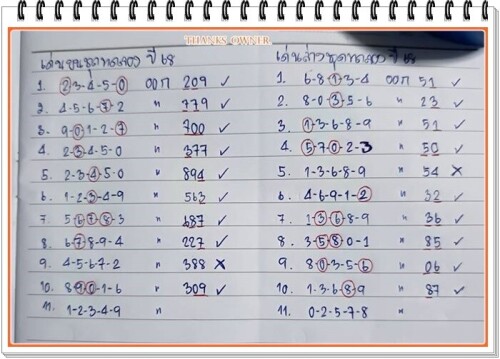 THANKS OWNER
เด่นบนชุดทดลอง ปี 68
1. 2-3-4-5-0 ออก 209 ✓
2. 4-5-6-7-2 " 779 ✓
3. 9-0-1-2-7 " 700 ✓
4. 2-3-4-5-0 " 377 ✓
5. 2-3-4-5-0 " 894 ✓
6. 1-2-3-4-9 " 563 ✓
7. 5-6-7-8-3 " 687 ✓
8. 6-7-8-9-4 " 227 ✓
9. 4-5-6-7-2 " 388 ✗
10. 8-9-0-1-6 " 309 ✓
11. 1-2-3-4-9 "
เด่นล่างชุดทดลอง ปี 68
1. 6-8-1-3-4 ออก 51 ✓
2. 8-0-3-5-6 " 23 ✓
3. 1-3-6-8-9 " 51 ✓
4. 5-7-0-2-3 " 50 ✓
5. 1-3-6-8-9 " 54 ✗
6. 4-6-9-1-2 " 32 ✓
7. 1-3-6-8-9 " 36 ✓
8. 3-5-8-0-1 " 85 ✓
9. 8-0-3-5-6 " 06 ✓
10. 1-3-6-8-9 " 87 ✓
11. 0-2-5-7-8 "